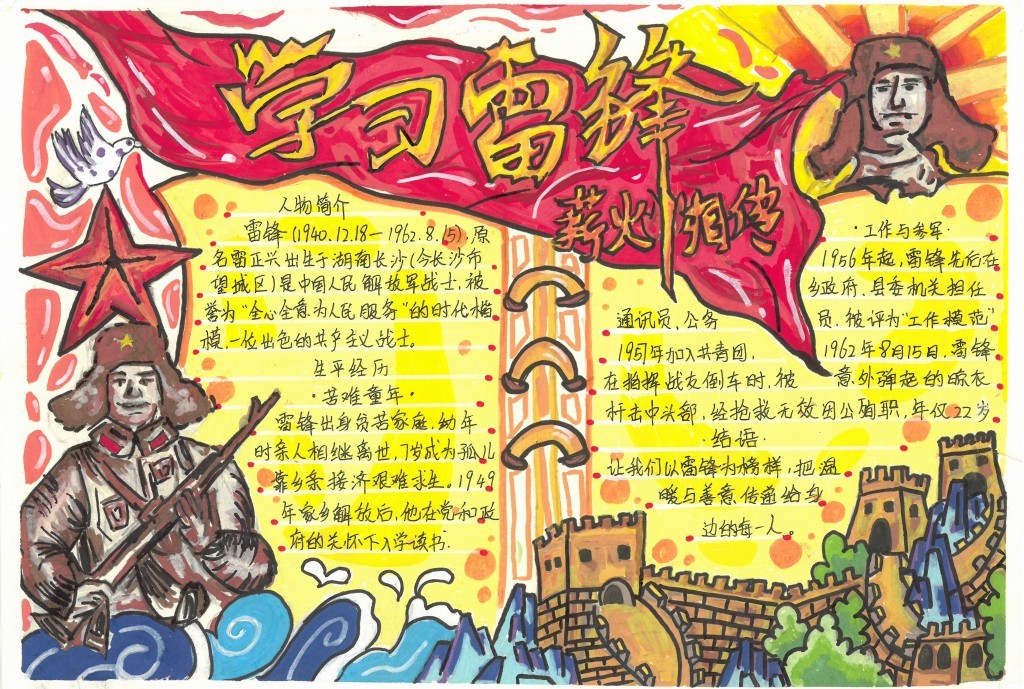 学习雷锋
薪火相传
人物简介
雷锋(1940.12.18—1962.8.15),原
名雷正兴出生于湖南长沙(今长沙市
望城区)是中国人民解放军战士,被
誉为“全心全意为人民服务”的时代楷
模,一位出色的共产主义战士。
生平经历
·苦难童年·
雷锋出身贫苦家庭,幼年
时亲人相继离世,7岁成为孤儿
靠乡亲接济艰难求生,1949
年家乡解放后,他在党和政
府的关怀下入学读书.
·工作与参军·
1956年起,雷锋先后在
乡政府、县委机关担任
通讯员,公务
员,被评为“工作模范”
1957年加入共青团,
1962年8月15日,雷锋
在指挥战友倒车时,被
意外弹起的晾衣
杆击中头部,经抢救无效因公殉职,年仅22岁
·结语·
让我们以雷锋为榜样,把温
暖与善意传递给身
边的每一人。